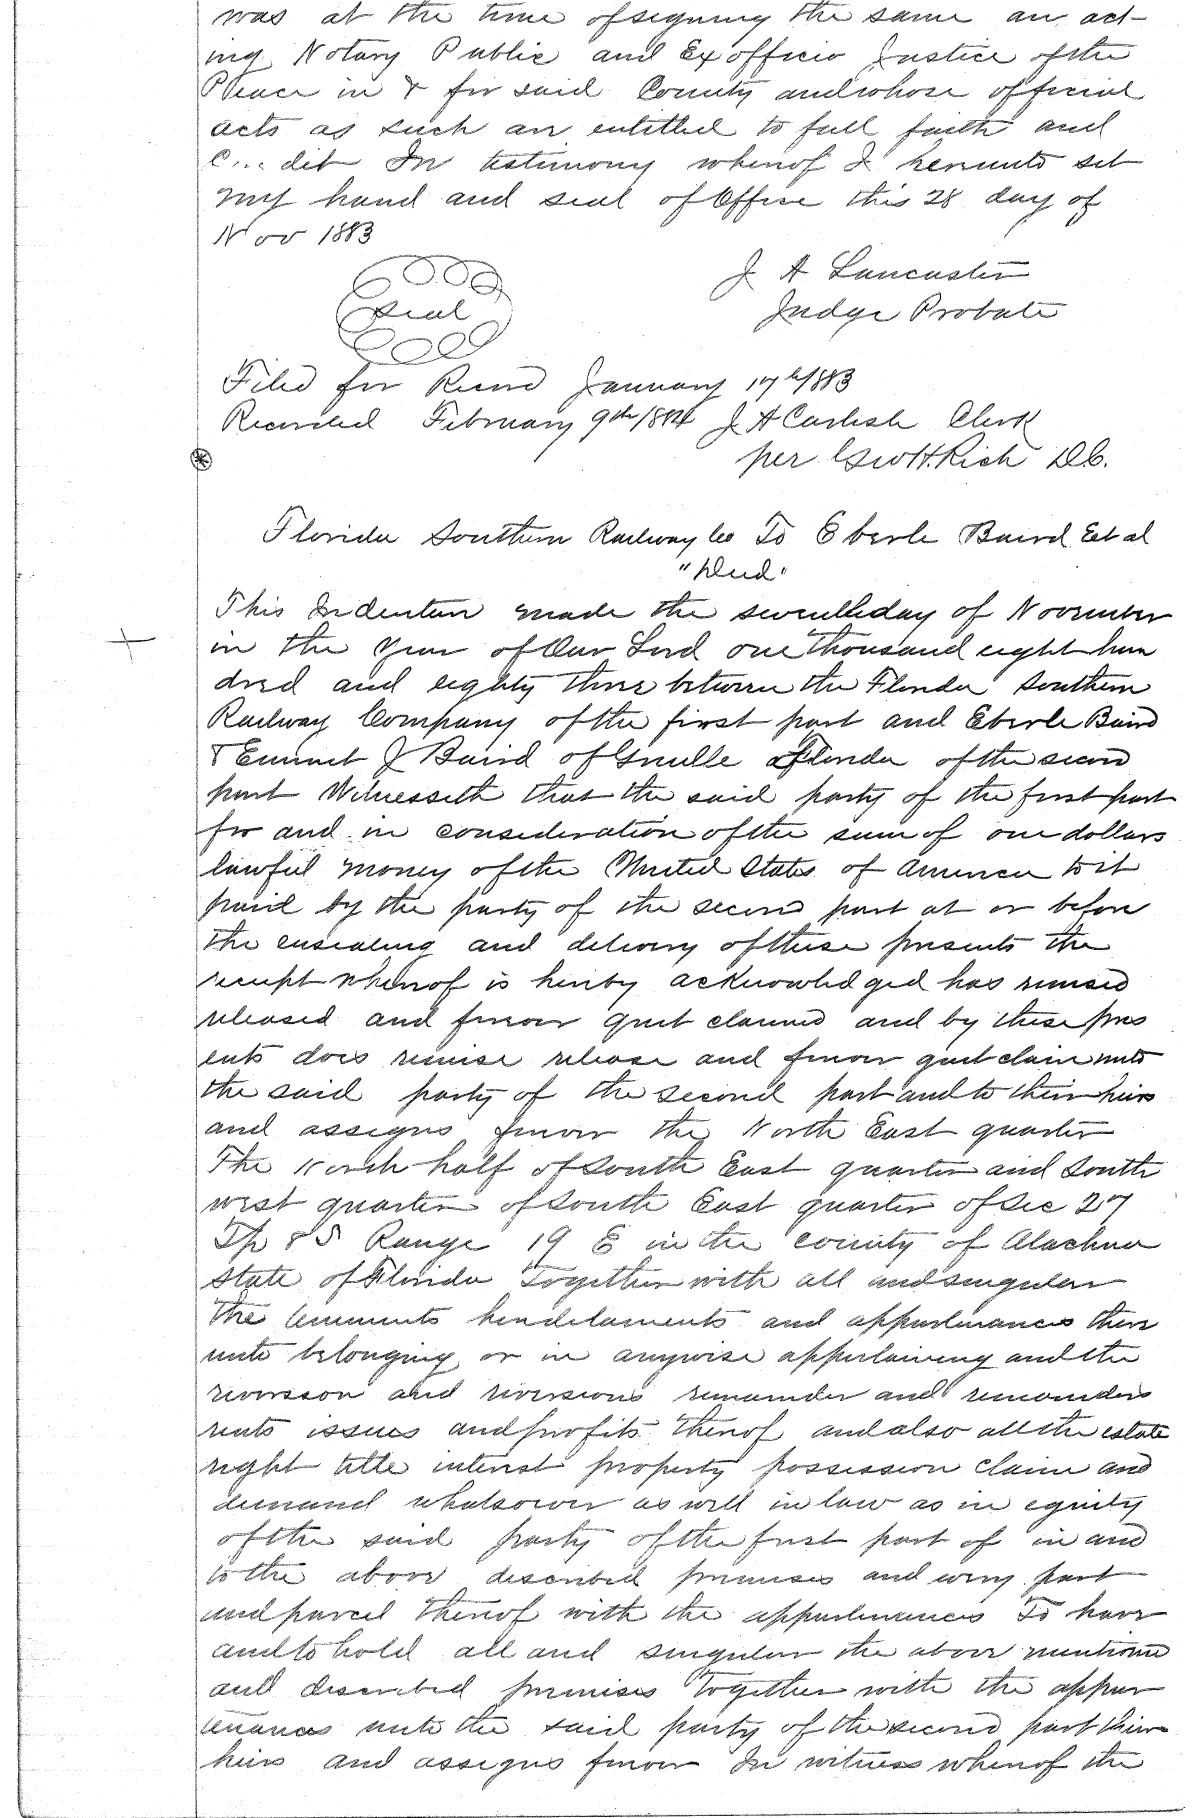 was at the time of signing the same an act-
ing Notary Public and Ex officio Justice of the
Peace in & for said County and whose official
acts as such are entitled to full faith and
C...dit In testimony whereof I hereunto set
my hand and seal of Office this 28 day of
Nov 1883
J A Lancaster
Seal
Judge Probate
Filed for Record January 17th/883
Recorded February 9th/884 J A Carlisle Clerk
per Geo H. Rich D.C.
Florida Southern Railway Co To Eberle Baird Et al
"Deed"
This Indenture made the seventh day of November
in the Year of Our Lord one thousand eight hun
dred and eighty three between the Florida Southern
Railway Company of the first part and Eberle Baird
& Emmet J Baird of Gville Florida of the second
part Witnesseth that the said party of the first part
for and in consideration of the sum of one dollars
lawful money of the United States of America to it
paid by the party of the second part at or before
the ensealing and delivery of these presents the
receipt whereof is hereby acknowledged has remised
released and forever quit claimed and by these pres
ents does remise release and forever quit claim unto
the said party of the second part and to their heirs
and assigns forever the North East quarter
The North half of South East quarter and South
west quarter of South East quarter of Sec 27
Tp 8 S Range 19 E in the county of Alachua
State of Florida Together with all and singular
the tenements hereditaments and appurtenances there
unto belonging or in anywise appertaining and the
reversion and reversions remainder and remainders
rents issues and profits thereof and also all the estate
right title interest property possession claim and
demand whatsoever as well in law as in equity
of the said party of the first part of in and
to the above described premises and every part
and parcel thereof with the appurtenances To have
and to hold all and singular the above mentioned
and described premises together with the appur
tenances unto the said party of the second part their
heirs and assigns forever In witness whereof the